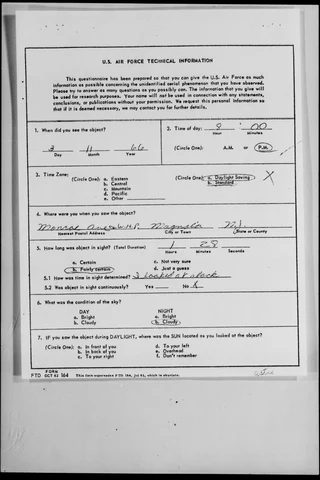 U.S. AIR FORCE TECHNICAL INFORMATION
This questionnaire has been prepared so that you can give the U.S. Air Force as much
information as possible concerning the unidentified aerial phenomenon that you have observed.
Please try to answer as many questions as you possibly can. The information that you give will
be used for research purposes. Your name will not be used in connection with any statements,
conclusions, or publications without your permission. We request this personal information so
that if it is deemed necessary, we may contact you for further details.
1. When did you see the object?
3 11 66
Day Month Year
2. Time of day: 9 : 00
Hour Minutes
(Circle One): A.M. or P.M.
3. Time Zone:
(Circle One): a. Eastern
b. Central
c. Mountain
d. Pacific
e. Other
(Circle One): a. Daylight Saving X
b. Standard
4. Where were you when you saw the object?
Magnolia N.J.
Nearest Postal Address City or Town State or County
5. How long was object in sight? (Total Duration) 1 28
Hours Minutes Seconds
a. Certain c. Not very sure
b. Fairly certain d. Just a guess
5.1 How was time in sight determined? I looked at clock
5.2 Was object in sight continuously? Yes No X
6. What was the condition of the sky?
DAY NIGHT
a. Bright a. Bright
b. Cloudy b. Cloudy
7. IF you saw the object during DAYLIGHT, where was the SUN located as you looked at the object?
(Circle One): a. In front of you d. To your left
b. In back of you e. Overhead
c. To your right f. Don't remember
FORM
FTD OCT 62 164 This form supersedes FTD 164, Jul 61, which is obsolete.